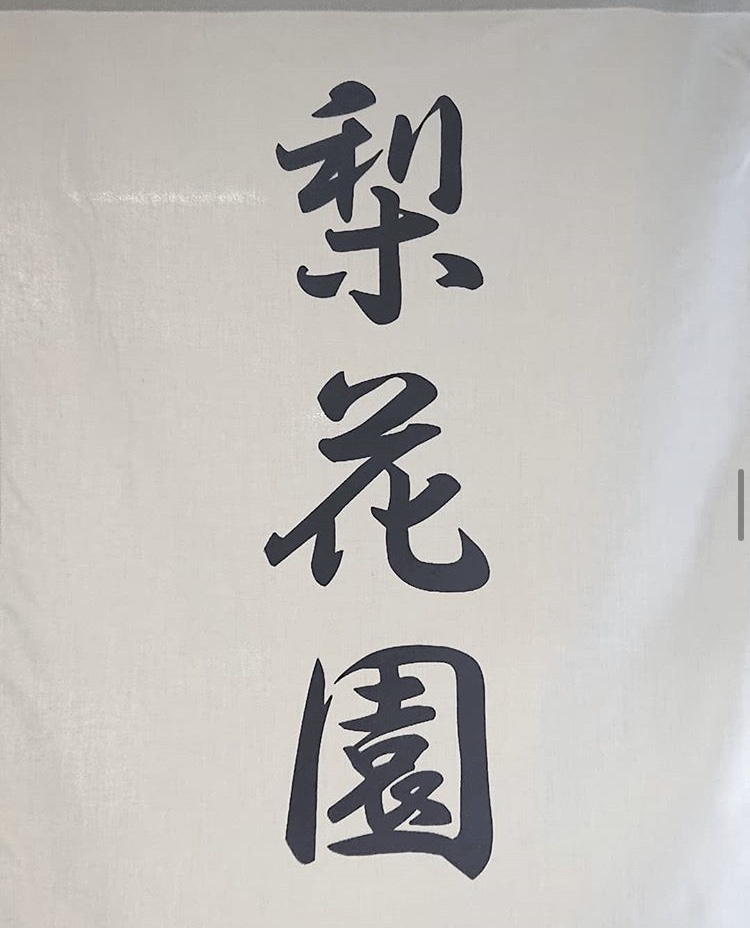 梨花園